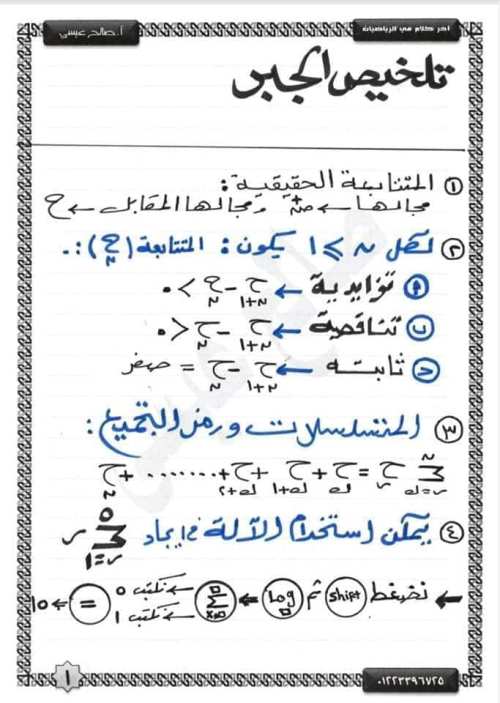 آخر كلام في الرياضيات
أ. صالح عيسى
تلخيص الجبر
① المتتابعة الحقيقية:
مجالها ← ص+ ومجالها المقابل ← ح
② لكل ن ≥ ١ يكون: المتتابعة (ح ن):.
أ تزايدية ← ح ن+١ - ح ن > ٠
ب تناقصية ← ح ن+١ - ح ن < ٠
ج ثابتة ← ح ن+١ - ح ن = صفر
③ المتسلسلات ورمز التجميع:
ن Σ ر=ك ح ر = ح ك + ح ك+١ + ح ك+٢ + ........ + ح ن
④ يمكن إستخدام الآلة في إيجاد ٥ Σ ر=١ ر
← نضغط Shift ثم Log ← Σ ← نكتب ٥ ← نكتب ١ = ← ١٥
١
٠١٢٢٣٣٩٦٧٢٥